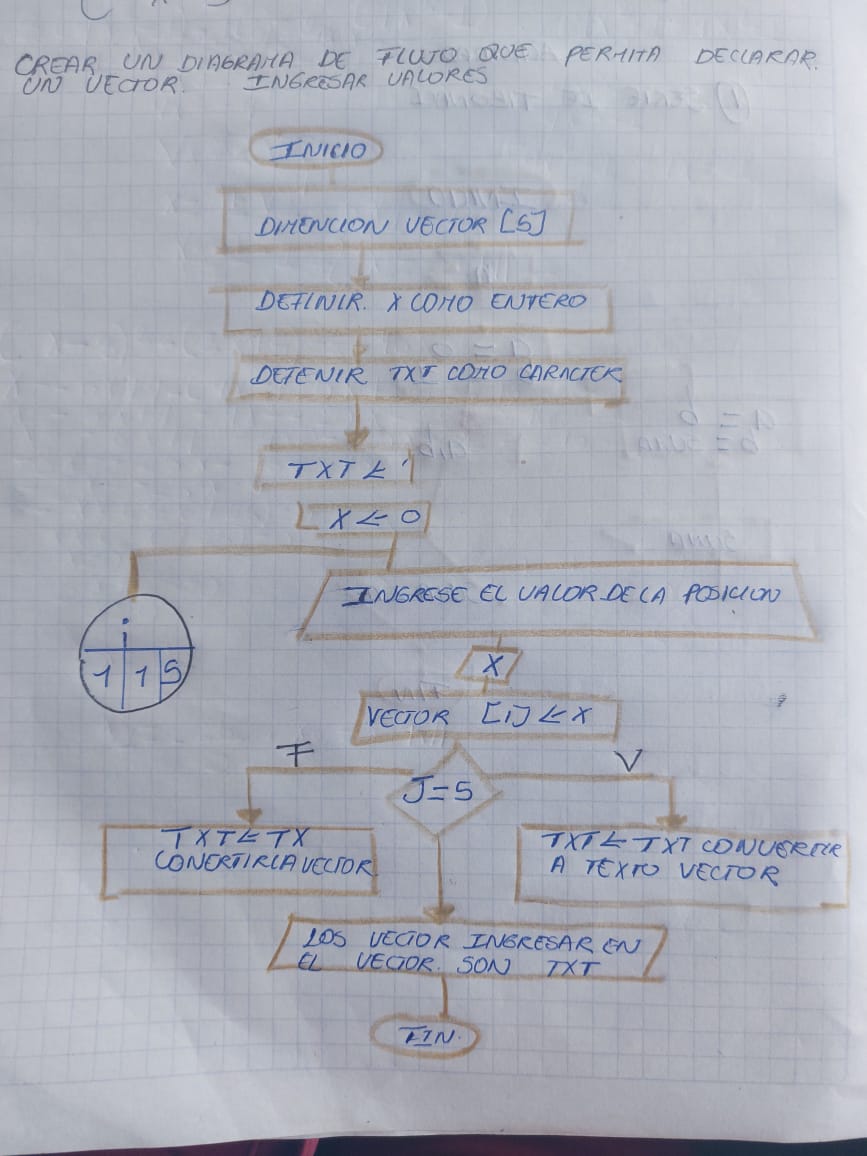 CREAR UN DIAGRAMA DE FLUJO QUE PERMITA DECLARAR.
UN VECTOR. INGRESAR VALORES
INICIO
DIMENCION VECTOR [5]
DEFINIR. X COMO ENTERO
DETENIR TXT COMO CARACTER
TXT ← '
X ← 0
INGRESE EL VALOR DE LA POSICION
i
1 1 5
X
VECTOR [i] ← X
F
V
J=5
TXT ← TX
CONERTIRLA VECTOR.
TXT ← TXT CONVERTIR
A TEXTO VECTOR
LOS VECTOR INGRESAR EN
EL VECTOR. SON TXT
FIN.